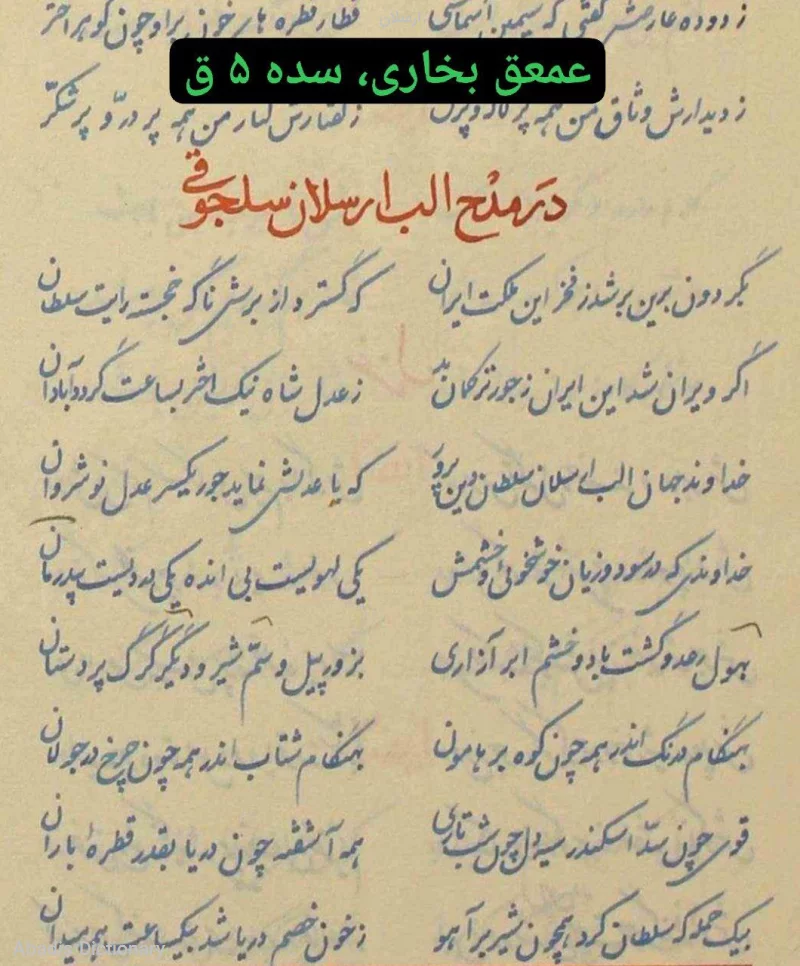 ز دوده عارضش گفتی که سیمین آسماسی قطار قطره های خون براو چون گوهر اختر
عمعق بخاری، سده ۵ ق
ز دیدارش وثاق من همه پر لاله و پر گل ز گفتارش کنار من همه پر درّ و پر شکّر
در مدح الب ارسلان سلجوقی
بگردون برین برشد ز فخر این ملکت ایران که گسترد از برش ناگه خجسته رایت سلطان
اگر ویران شد این ایران ز جور ترکمان بد ز عدل شاه نیک اختر بساعت گردد آبادان
خداوند جهان الب ارسلان سلطان دین پرور که با عدلش نماید جور یکسر عدل نوشروان
خداوندی که در سود و زیان خوشخوئی و خشمش یکی لهویست بی انده یکی دردیست بیدرمان
بهول رعد و گشت باد و خشم ابر آزاری بزور پیل و سَمّ شیر و دیگر گرگ پر دستان
بهنگام درنگ اندر همه چون کوه بر هامون بهنگام شتاب اندر همه چون چرخ در جولان
قوی چون سدّ اسکندر سیه دل چون شب تاری همه آشفته چون دریا بقدر قطرهٔ باران
بیک حمله که سلطان کرد همچون شیر بر آهو ز خون خصم دریا شد بیکساعت همه میدان
Abadis Dictionary